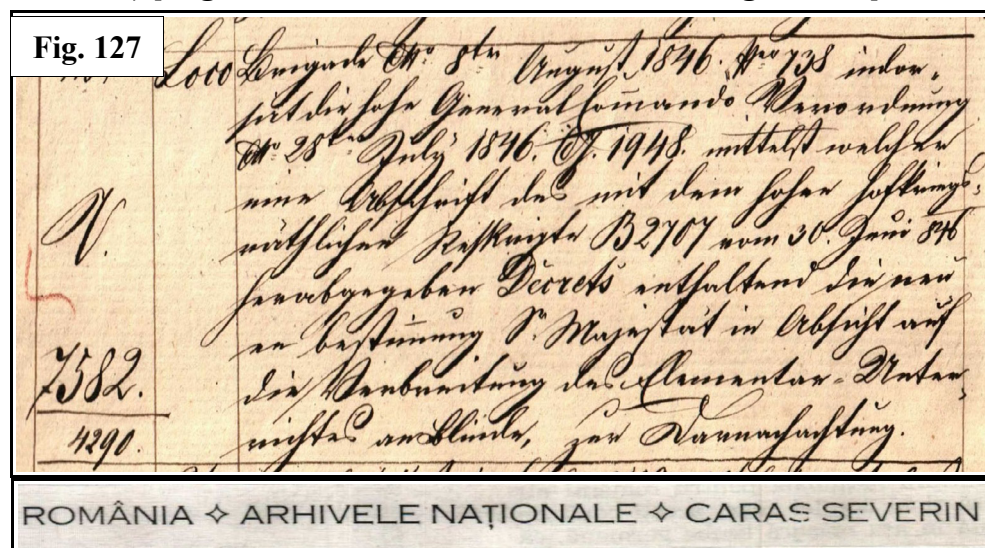 Fig. 127
Loco Brigade dto 8ten August 1846. Nro 738 indor-
sirt die hohe General Comando Verordnung
dto 28ten July 1846. J. 1948. mittelst welcher
eine Abschrift des mit dem hohen hofkriegs-
räthlichen Reskripte B 2707 vom 30. Juni 846
herabgegeben Decrets enthaltend die neu
en bestimung Sr Majestät in Absicht auf
die Verbreitung des Elementar-Unter-
richtes an Blinde, zur Darnachachtung.
N.
7582.
4290.
ROMÂNIA ✧ ARHIVELE NAȚIONALE ✧ CARAȘ SEVERIN